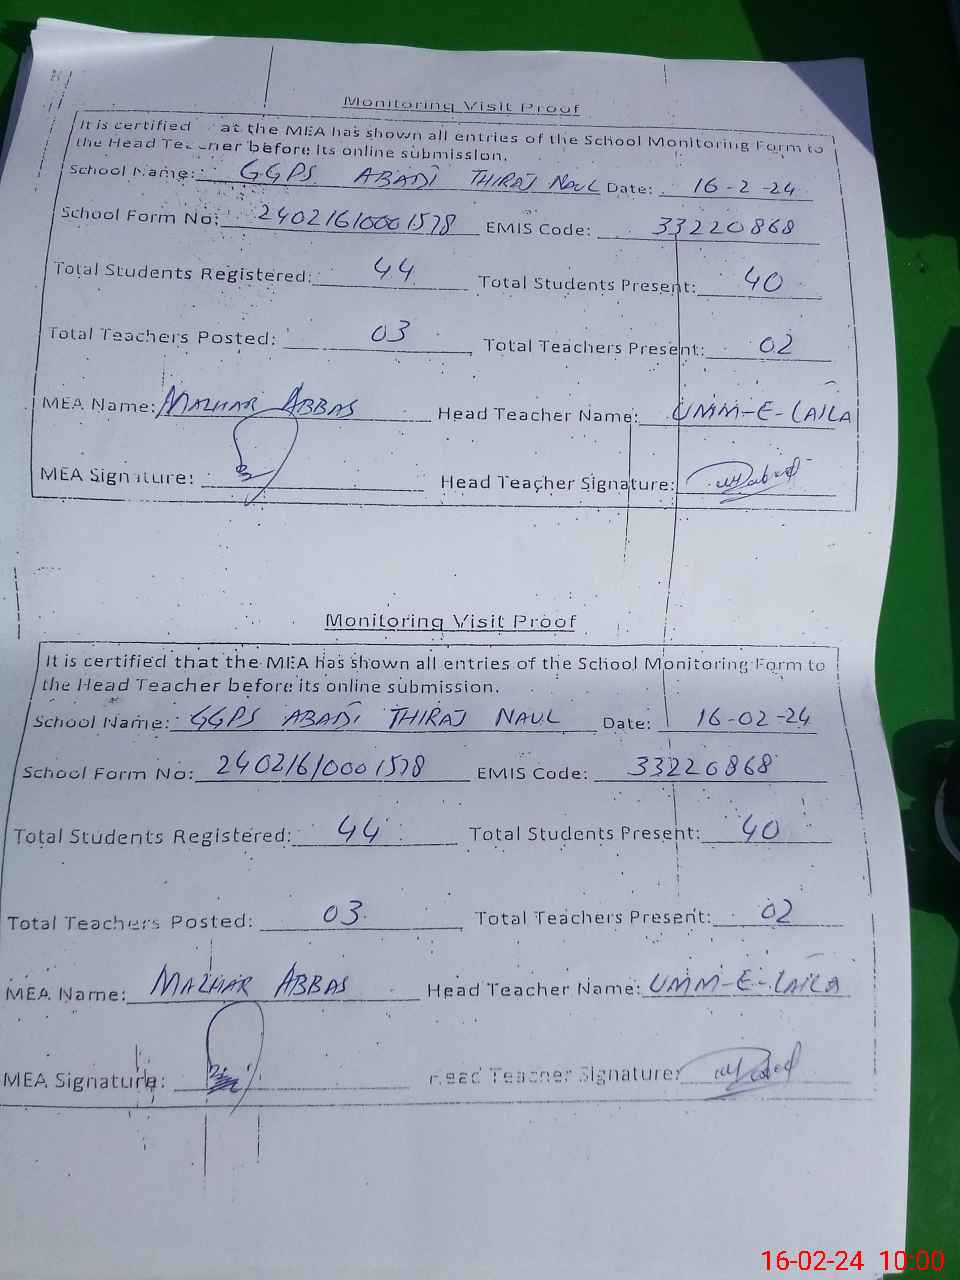 Monitoring Visit Proof
It is certified at the MEA has shown all entries of the School Monitoring Form to
the Head Teacher before its online submission.
School Name: GGPS ABADI THIRAJ NAUL Date: 16-2-24
School Form No: 24021610001578 EMIS Code: 33220868
Total Students Registered: 44 Total Students Present: 40
Total Teachers Posted: 03 Total Teachers Present: 02
MEA Name: MAZHAR ABBAS Head Teacher Name: UMM-E-LAILA
MEA Signature: Head Teacher Signature:
Monitoring Visit Proof
It is certified that the MEA has shown all entries of the School Monitoring Form to
the Head Teacher before its online submission.
School Name: GGPS ABADI THIRAJ NAUL Date: 16-02-24
School Form No: 24021610001578 EMIS Code: 33220868
Total Students Registered: 44 Total Students Present: 40
Total Teachers Posted: 03 Total Teachers Present: 02
MEA Name: MAZHAR ABBAS Head Teacher Name: UMM-E-LAILA
MEA Signature: Head Teacher Signature:
16-02-24 10:00